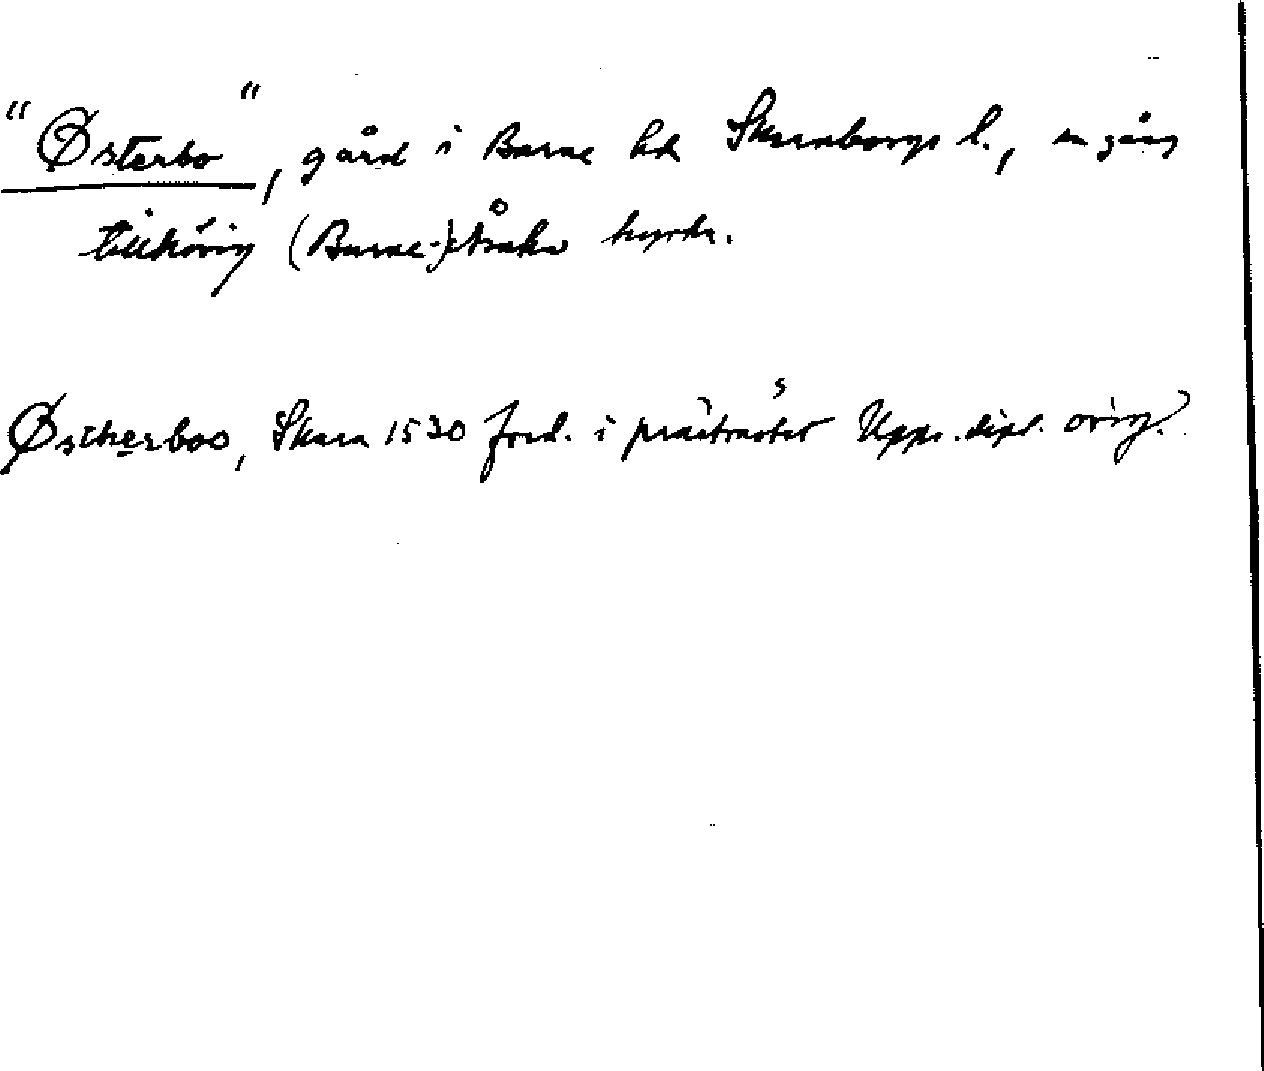 "Østerbo", gård i Barne hd Skaraborgs l., en gång
tillhörig (Barne-)Åsaka kyrka.
Østherboo, Skara 1530 fred. i präsfraster Upps. dipl. orig.